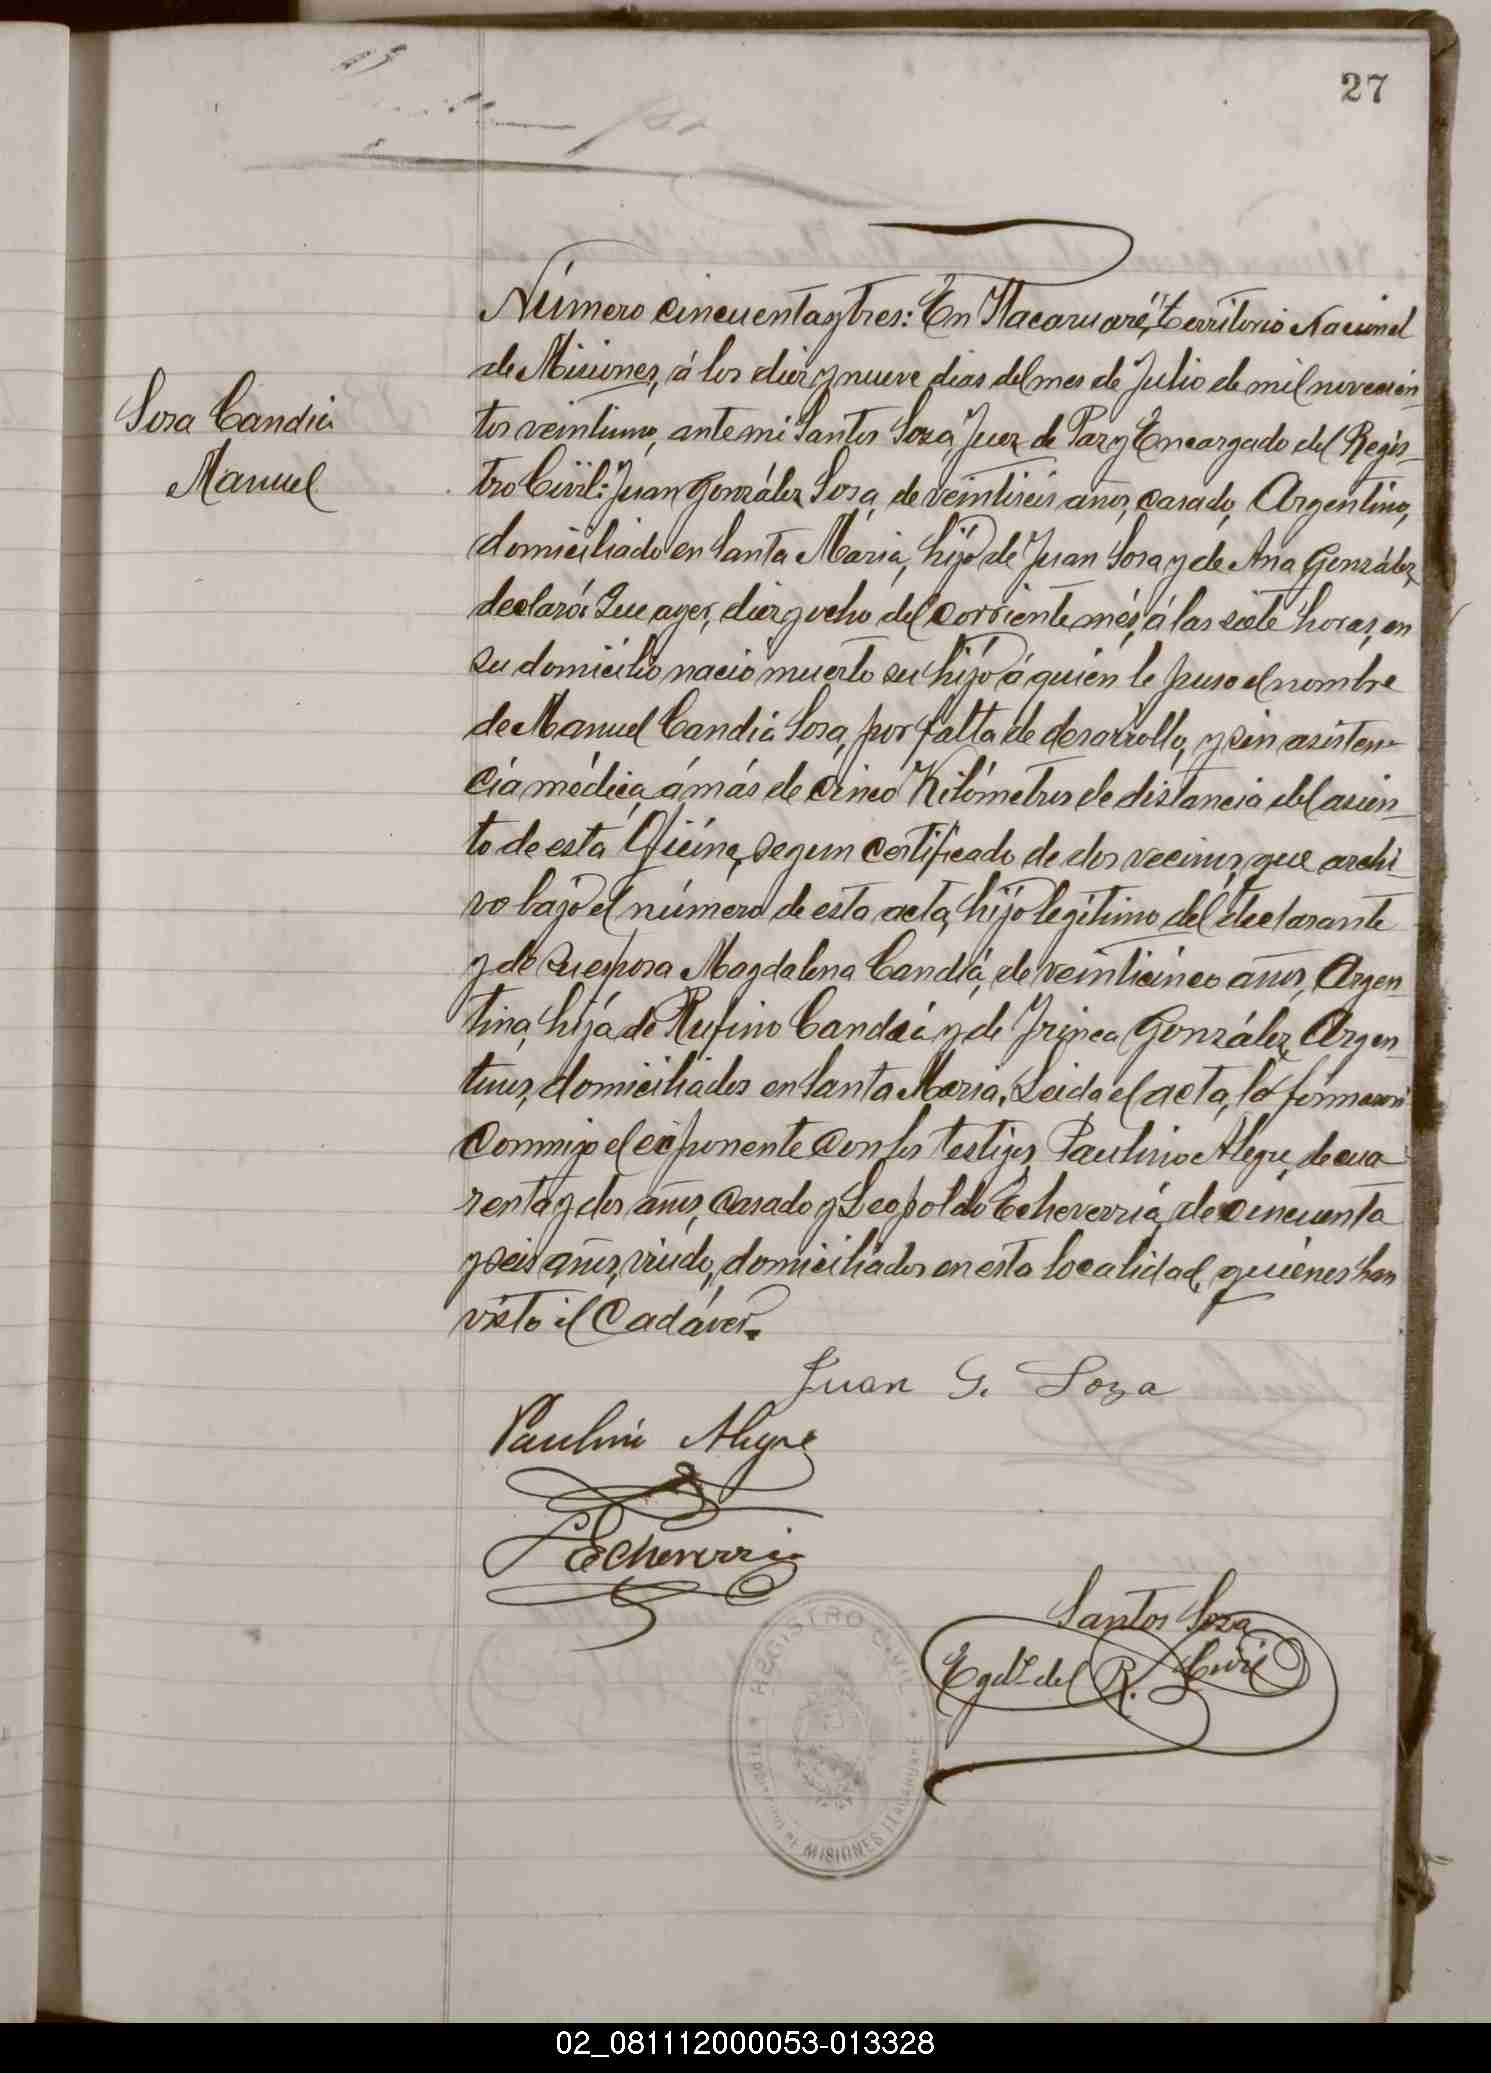 27
Sosa Candia
Manuel
Número cincuenta y tres: En Itacaruaré, Territorio Nacional
de Misiones, á los diez y nueve dias del mes de Julio de mil novecien-
tos veintiuno, ante mi Santos Soza, Juez de Paz y Encargado del Regis-
tro Civil: Juan González Sosa, de veintiseis años, casado, Argentino,
domiciliado en Santa María, hijo de Juan Sosa y de Ana González,
declaró: Que ayer, diez y ocho del corriente més, á las siete horas, en
su domicilio nació muerto su hijo á quién le puso el nombre
de Manuel Candia Sosa, por falta de desarrollo, y sin asisten-
cia médica, á más de cinco Kilómetros de distancia del asien-
to de esta Oficina, segun certificado de dos vecinos, que archi-
vo bajo el número de esta acta, hijo legítimo del declarante
y de su esposa Magdalena Candia, de veinticinco años, Argen-
tina, hija de Rufino Candia y de Irinea González, Argen-
tinos, domiciliados en Santa Maria. Leida el acta, la firmaron
conmigo el exponente con los testigos Paulino Alegre, de cua-
renta y dos años, casado y Leopoldo Echeverria, de cincuenta
y seis años, viudo, domiciliados en esta localidad, quienes han
visto el cadáver.
Juan G. Soza
Paulino Alegre
L Echeverria
Santos Soza
Egdo. del R. Civil
REGISTRO CIVIL
MISIONES ITACARUARE
02_081112000053-013328